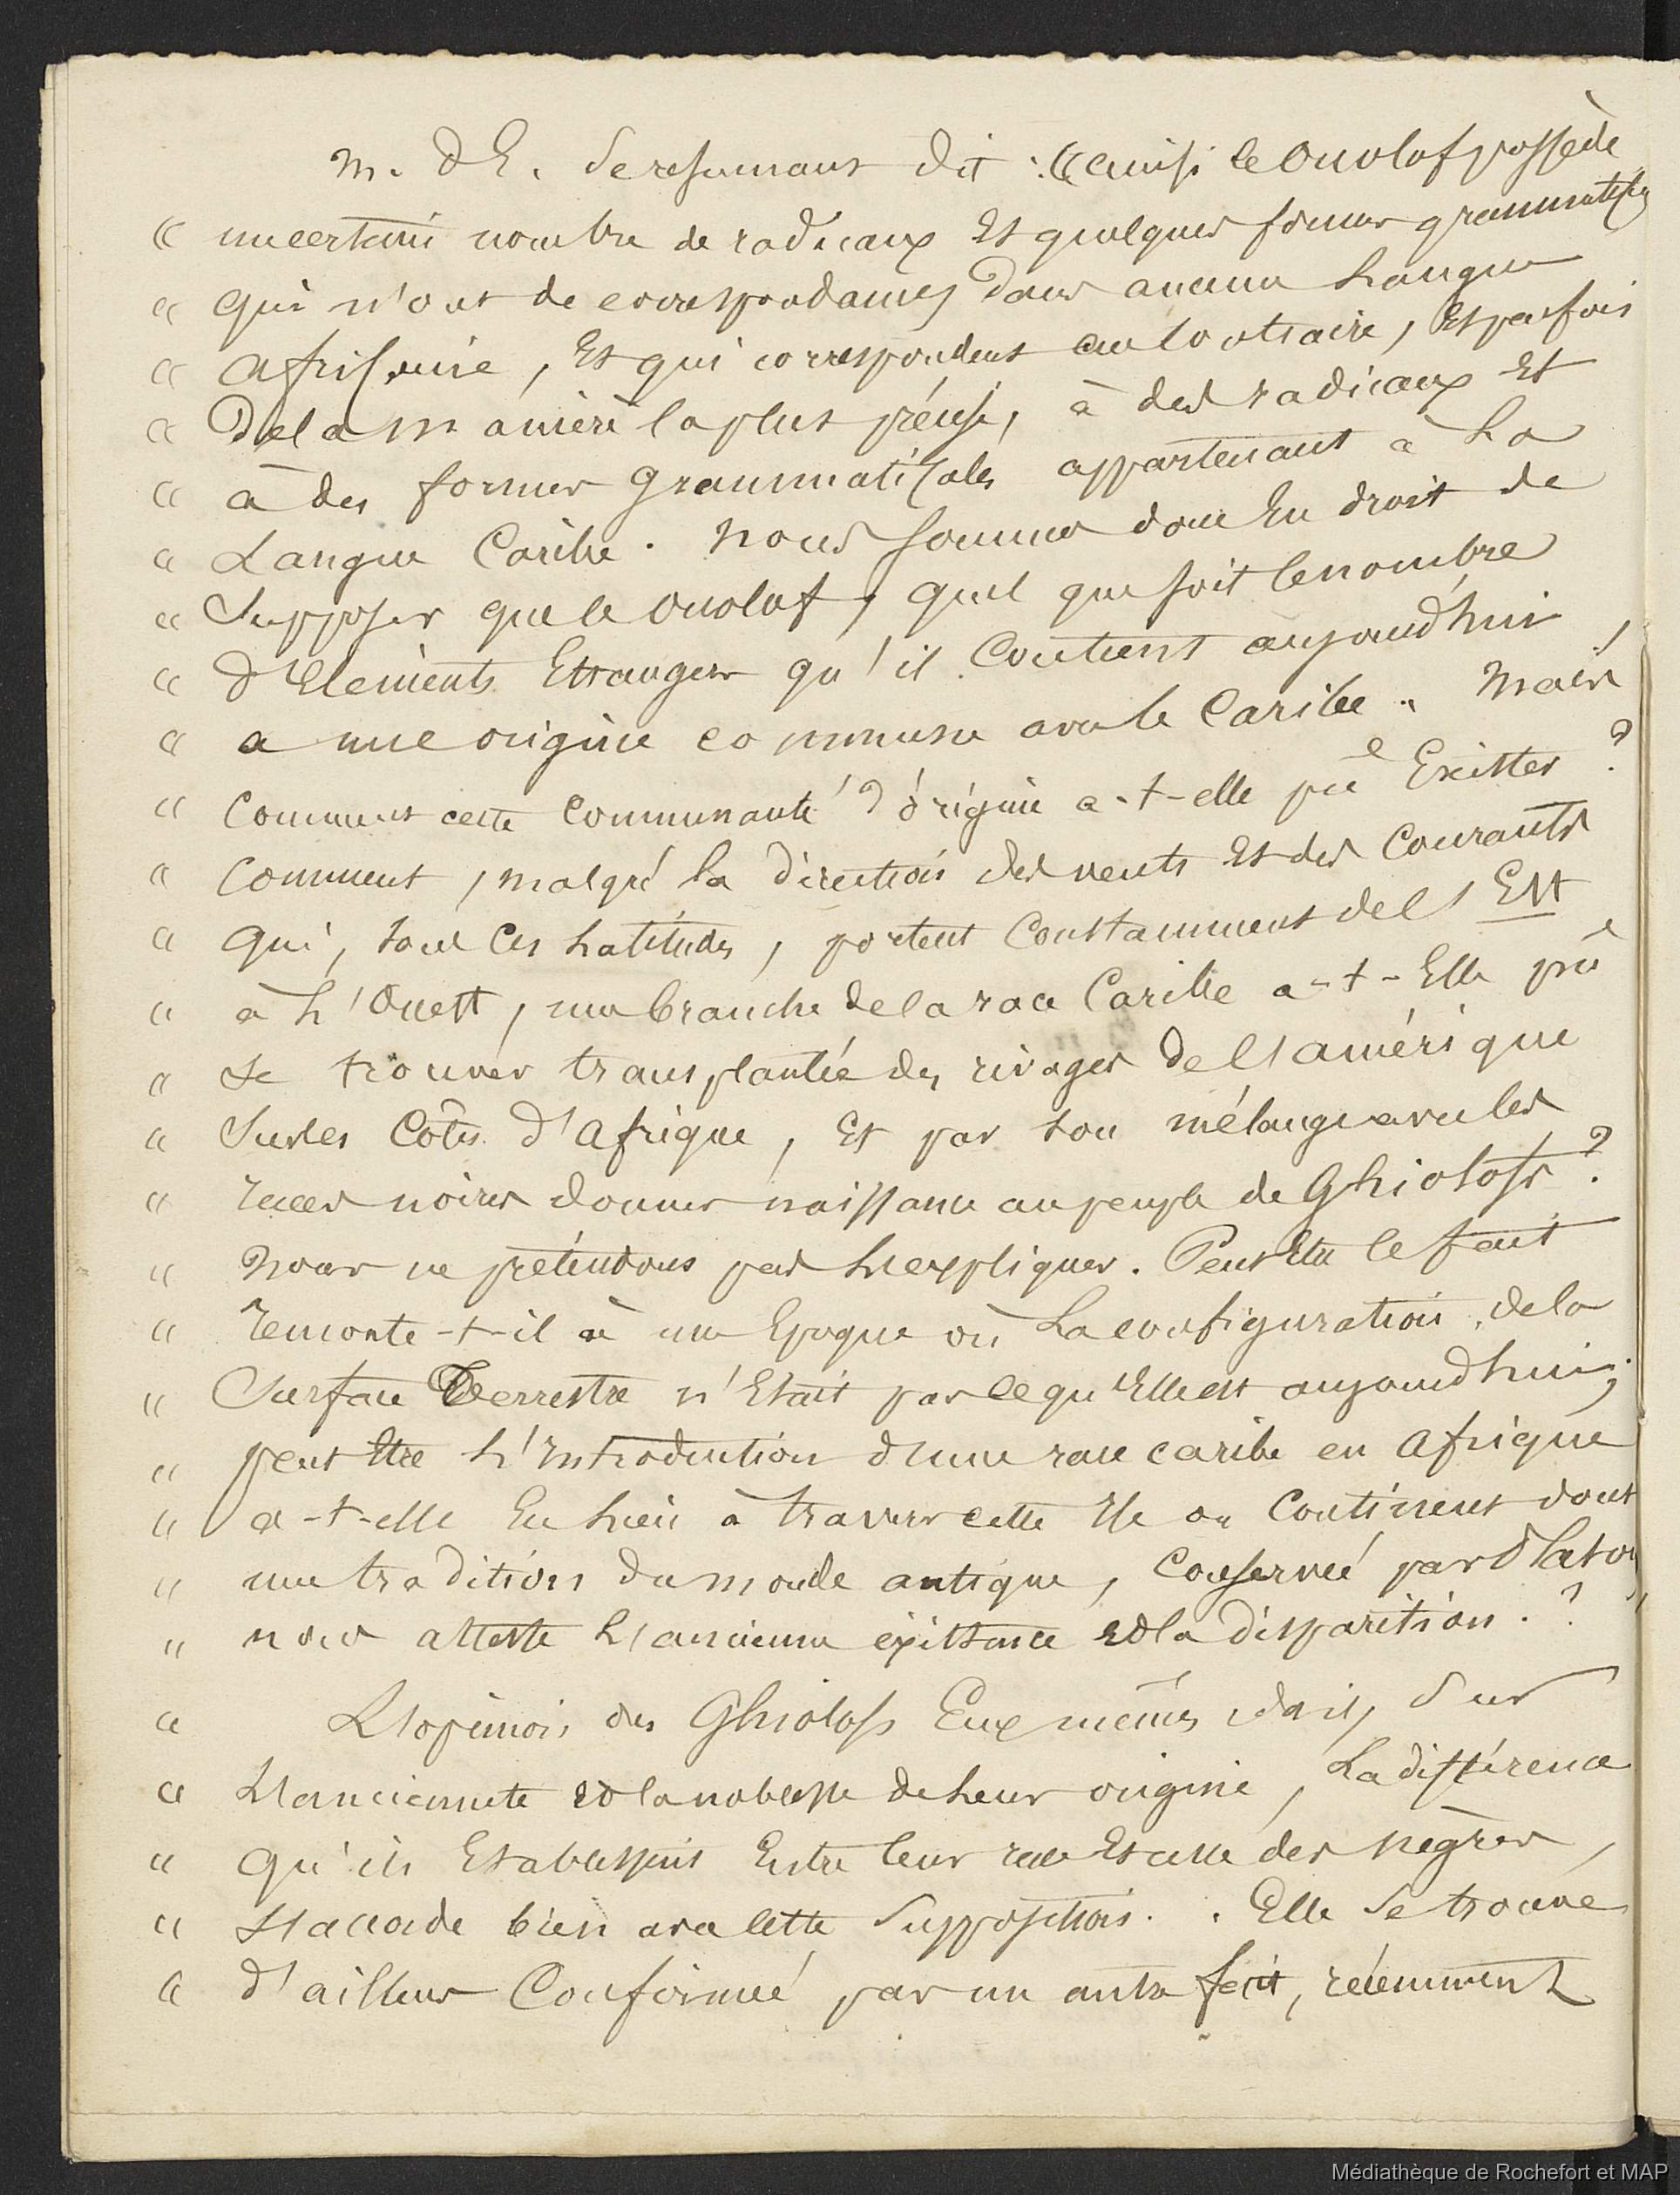 M. d'E. se resumant dit : « ainsi le Ouolof possède
« un certain nombre de radicaux Et quelques formes grammaticales
« qui n'ont de correspondances dans aucune Langue
« africaine, Et qui correspondent au contraire, Et parfois
« de la manière la plus précise, à des radicaux Et
« à des formes Grammaticales appartenant à La
« Langue Caribe. Nous sommes donc En droit de
« Supposer que le Ouolof, quel que soit le nombre
« d'Eléments Etrangers qu'il Contient aujourd'hui,
« a une origine commune avec le Caribe. Mais
« Comment cette Communauté d'origine a-t-elle pu Exister ?
« Comment, malgré la direction des vents Et des Courants
« qui, sous Ces Latitudes, portent Constamment de l'Est
« à L'Ouest, une branche de la race Caribe a-t-Elle pu
« se trouver transplantée des rivages de l'amérique
« Sur les Côtes d'afrique, Et par son mélange avec les
« races noires donner naissance au peuple de Ghiolofs ?
« Nous ne prétendons pas L'expliquer. Peut Etre le fait
« remonte-t-il à une Epoque où La configuration de la
« Surface Terrestre n'Etait pas ce qu'Elle est aujourd'hui ;
« peut Etre L'Introduction d'une race caribe en afrique
« a-t-elle Eu Lieu à travers cette Ile ou Continent dont
« une tradition du monde antique, Conservée par Platon,
« nous atteste L'ancienne existence Et la disparition. ?
« L'opinion des Ghiolofs Eux mêmes, sur
« L'ancienneté Et la noblesse de Leur origine, La différence
« qu'ils Etablissent Entre leur race Et celle des nègres,
« s'accorde bien avec Cette Supposition. Elle se trouve
« d'ailleurs Confirmée par un autre fait, récemment
Médiathèque de Rochefort et MAP